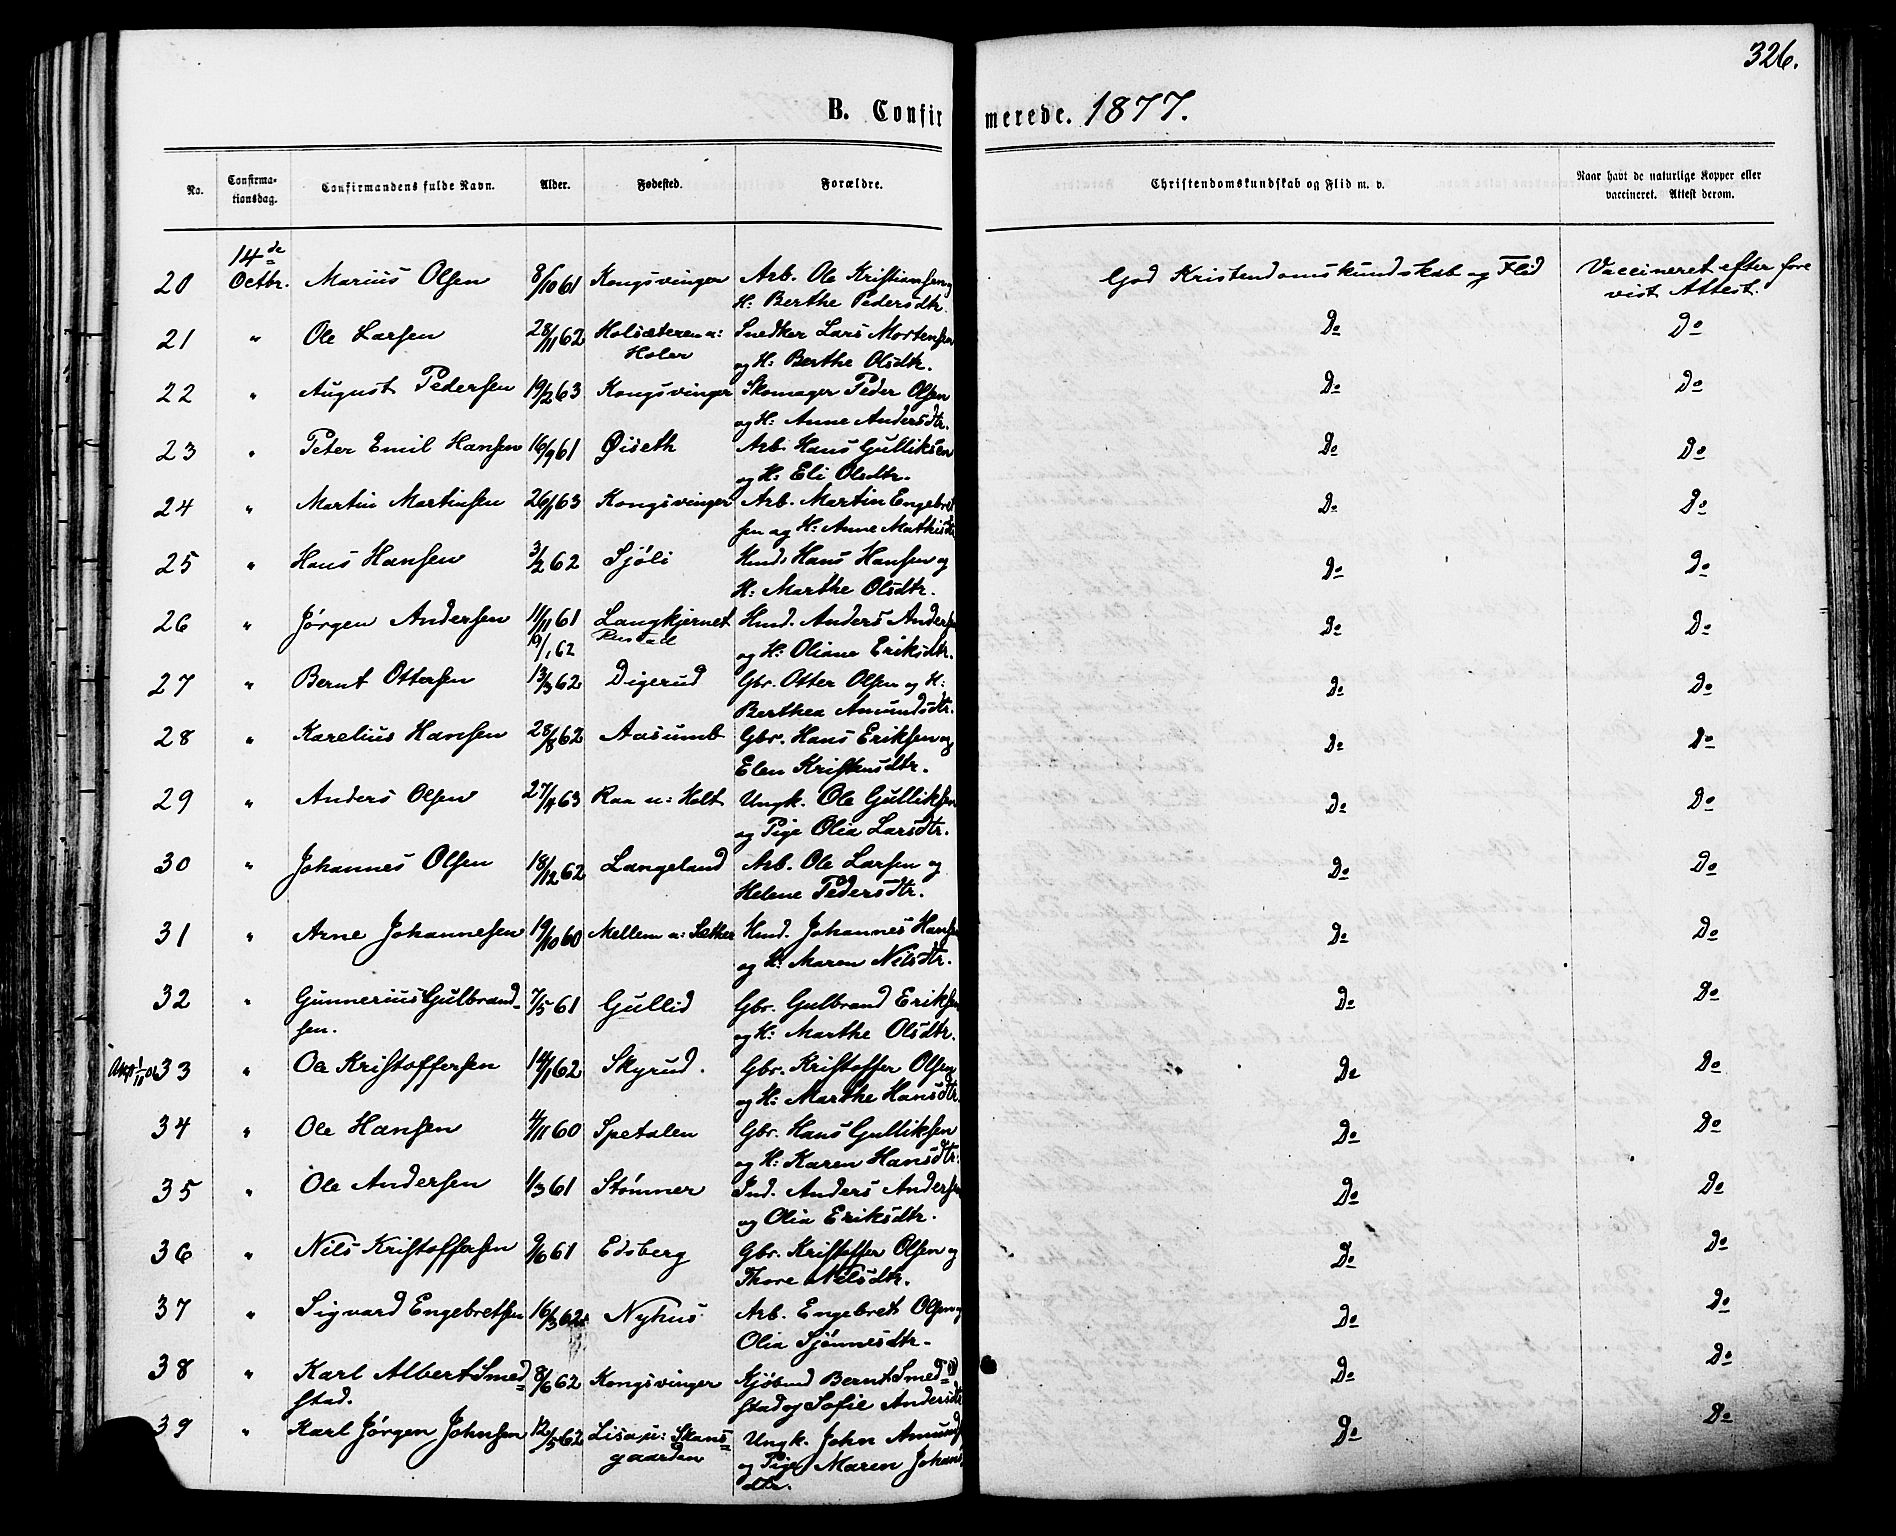 326.
B. Confirmerede. 1877.
No. Confirmationsdag. Confirmandens fulde Navn. Alder. Fødested. Forældre. Christendomskundskab og Flid m. v. Naar havt de naturlige Kopper eller vaccineret. Attest derom.
20 14de Octbr. Marius Olsen 8/10 61 Kongsvinger Arb. Ole Kristiansen og God Kristendomskundskab og Flid Vaccineret efter fore
H: Berthe Pedersdtr. vist Attest.
21 " Ole Larsen 28/11 62 Holsæteren u: Snedker Lars Mortensen Do Do
Holer og H: Berthe Olsdtr.
22 " August Pedersen 19/2 63 Kongsvinger Skomager Peder Olsen Do Do
og H: Anne Andersdtr.
23 " Peter Emil Hansen 16/9 61 Øiseth Arb. Hans Gulliksen Do Do
og H: Eli Olsdtr.
24 " Martin Martinsen 26/1 63 Kongsvinger Arb. Martin Engebret Do Do
sen og H: Anne Mathisdtr
25 " Hans Hansen 3/2 62 Sjøli Hmd. Hans Hansen og Do Do
H: Marthe Olsdtr.
26 " Jørgen Andersen 11/11 61 Langkjernet Hmd. Anders Andersen Do Do
19/1 62 Rustad og H: Oliane Eriksdtr.
27 " Bernt Ottersen 13/3 62 Digerud Gbr. Otter Olsen og H: Do Do
Berthea Amundsdtr.
28 " Karelius Hansen 28/8 62 Aasumb Gbr. Hans Eriksen og Do Do
Elen Kristensdtr.
29 " Anders Olsen 27/4 63 Raa u: Holt Ungk. Ole Gulliksen Do Do
og Pige Olia Larsdtr.
30 " Johannes Olsen 18/12 62 Langeland Arb. Ole Larsen og Do Do
Helene Pedersdtr.
31 " Arne Johannesen 19/10 60 Mellem u: Sæther Hmd. Johannes Hansen Do Do
og H: Maren Nilsdtr.
32 " Gunnerius Gulbrand- 7/5 61 Gullid Gbr. Gulbrand Eriksen Do Do
sen. og H: Marthe Olsdtr.
33 " Ole Kristoffersen 14/1 62 Skyrud. Gbr. Kristoffer Olsen Do Do
og H: Marthe Hansdtr.
34 " Ole Hansen 4/11 60 Spetalen Gbr. Hans Gulliksen Do Do
og H: Karen Hansdtr.
35 " Ole Andersen 1/3 61 Stømner Ind. Anders Andersen Do Do
og Olia Eriksdtr.
36 " Nils Kristoffersen 9/6 61 Edsberg Gbr. Kristoffer Olsen og Do Do
Thore Nilsdtr.
37 " Sigvard Engebretsen 16/3 62 Nyhus Arb. Engebret Olsen og Do Do
Olia Sjønnesdtr.
38 " Karl Albert Smed- 8/6 62 Kongsvinger Kjøbmd Bernt Smed- Do Do
stad. stad og Sofie Andersdtr
39 " Karl Jørgen Johnsen 12/5 62 Lisa u: Skans- Ungk. John Amunds Do Do
gaarden og Pige Maren Johans
dtr.